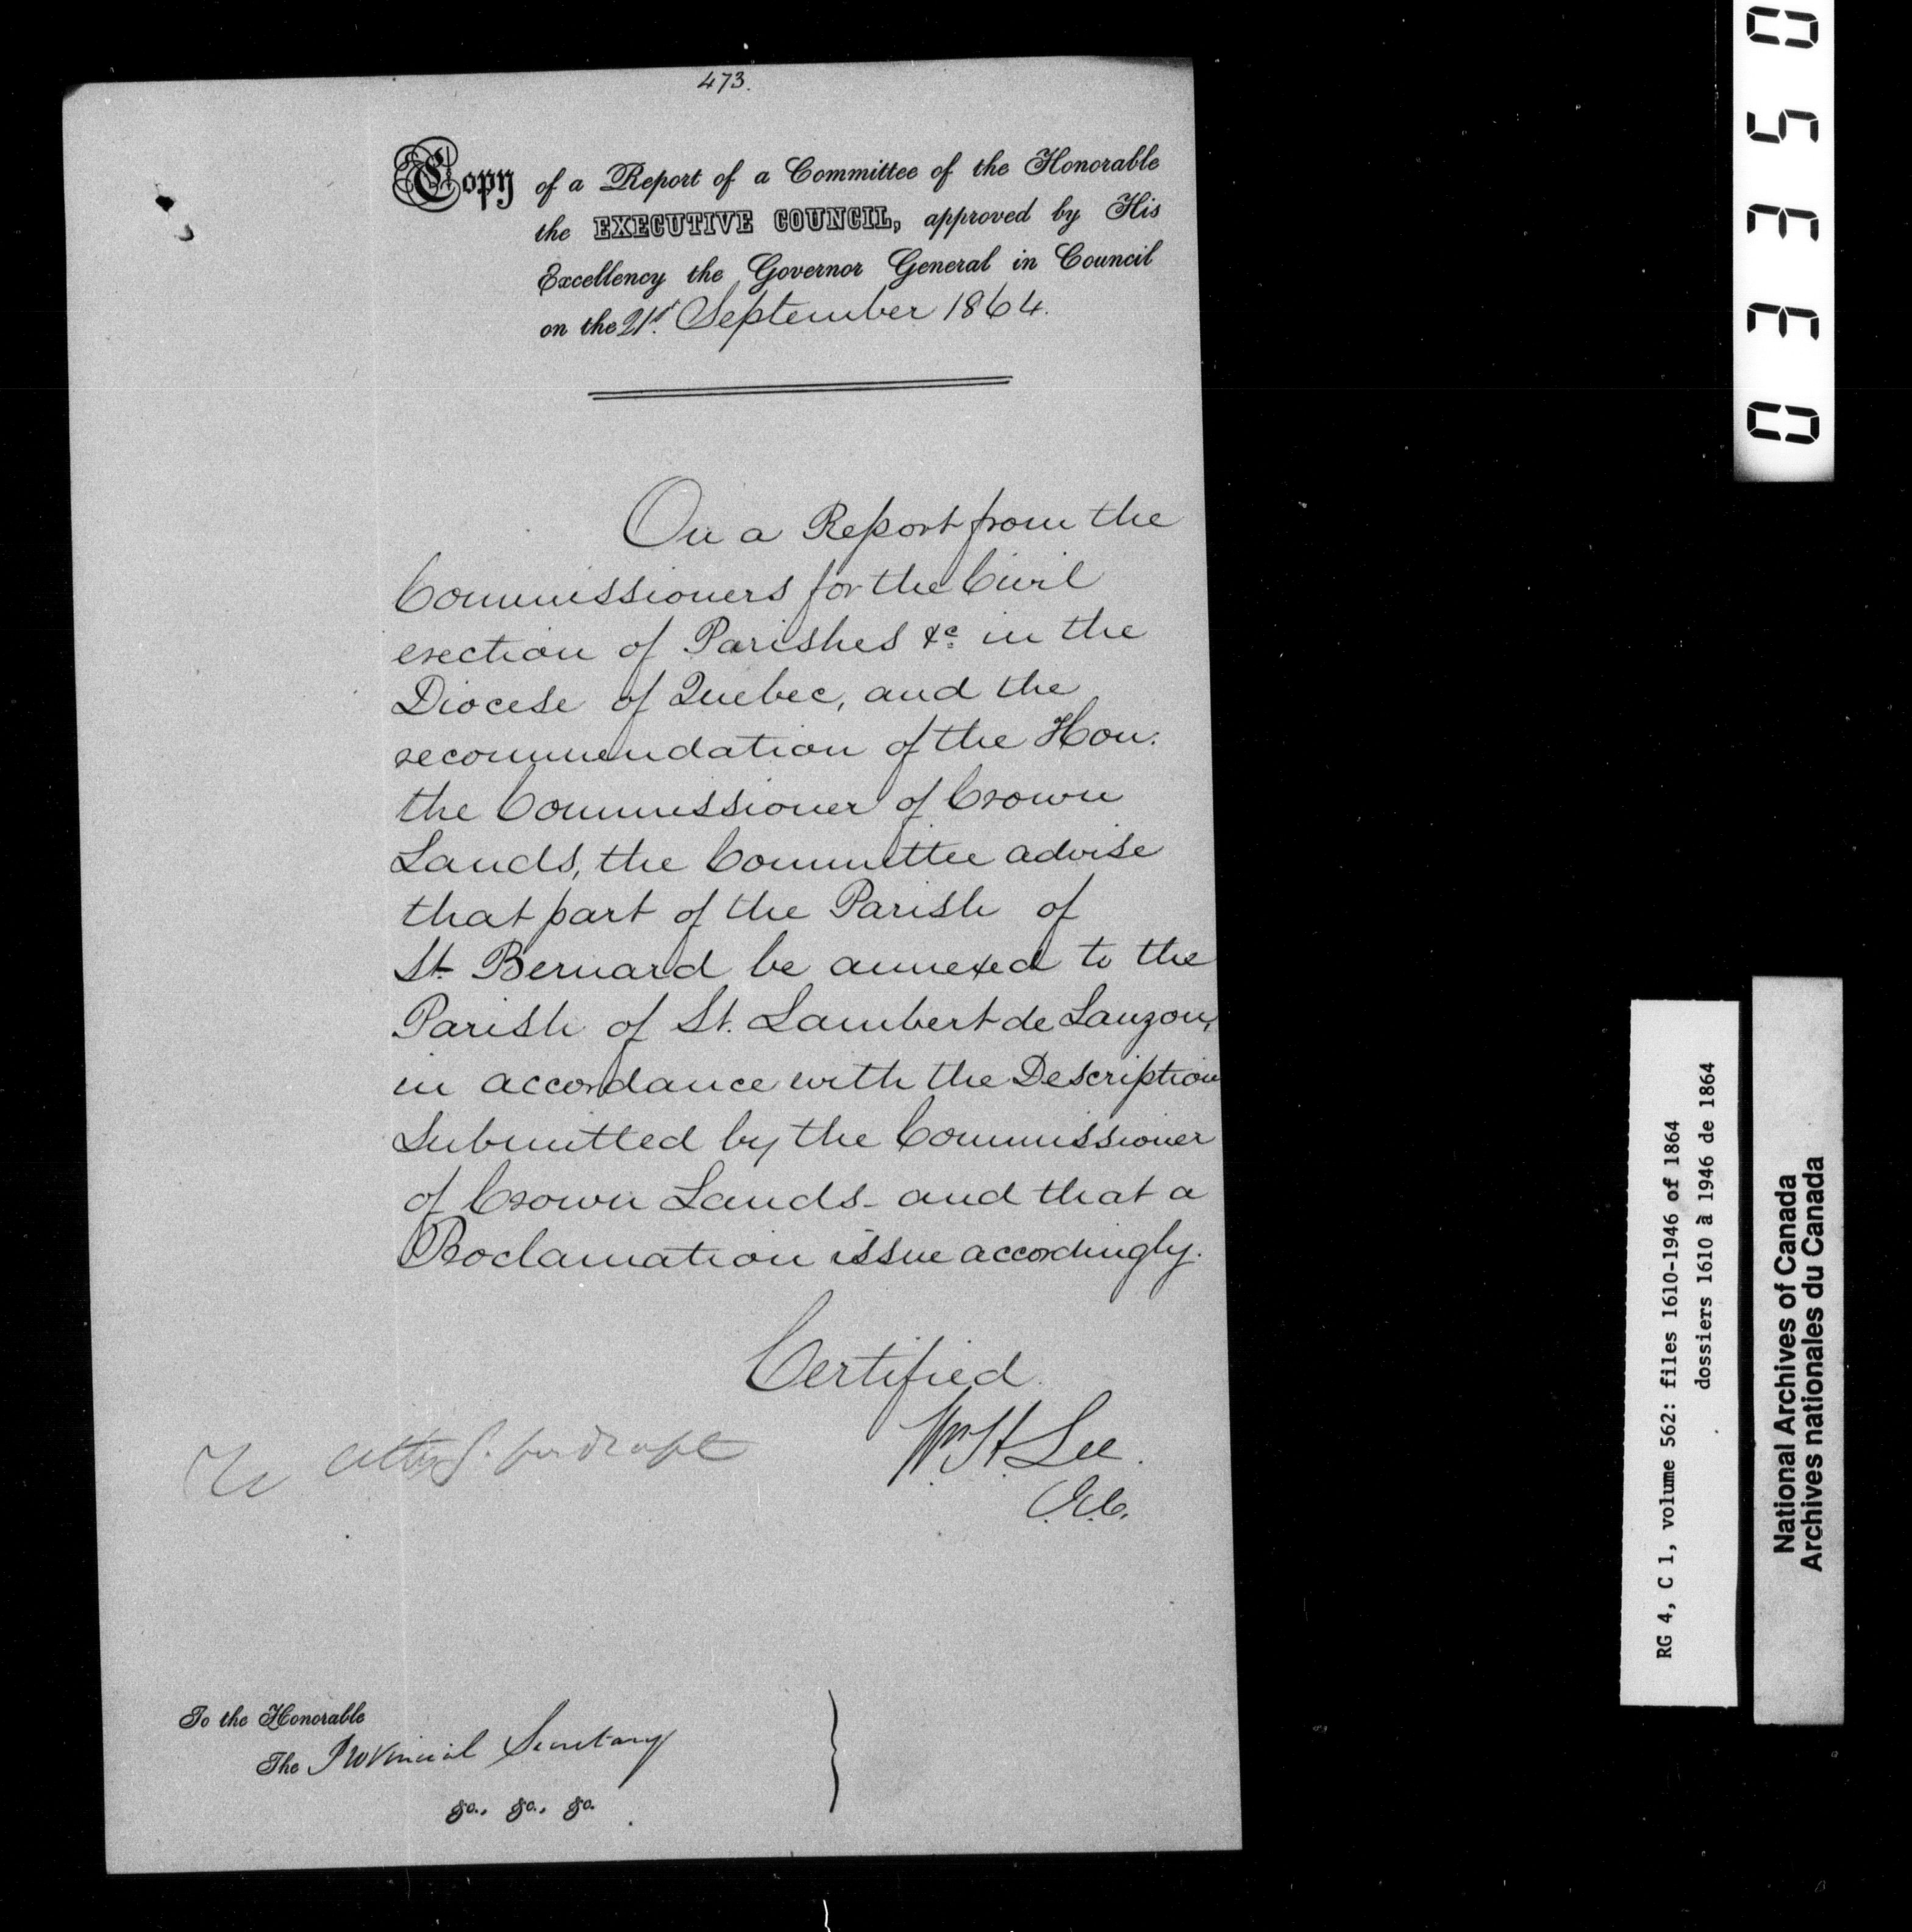 473.
Copy of a Report of a Committee of the Honorable
the EXECUTIVE COUNCIL, approved by His
Excellency the Governor General in Council
on the 21st September 1864.
On a Report from the
Commissioners for the Civil
erection of Parishes &c. in the
Diocese of Quebec, and the
recommendation of the Hon:
the Commissioner of Crown
Lands, the Committee advise
that part of the Parish of
St. Bernard be annexed to the
Parish of St. Lambert de Lauzon,
in accordance with the Description
Submitted by the Commissioner
of Crown Lands - and that a
Proclamation issue accordingly.
Certified.
Wm H Lee.
for draft
To the Honorable
The Provincial Secretary
&c., &c., &c.
03350
RG 4, C 1, volume 562: files 1610-1946 of 1864
dossiers 1610 à 1946 de 1864
National Archives of Canada
Archives nationales du Canada